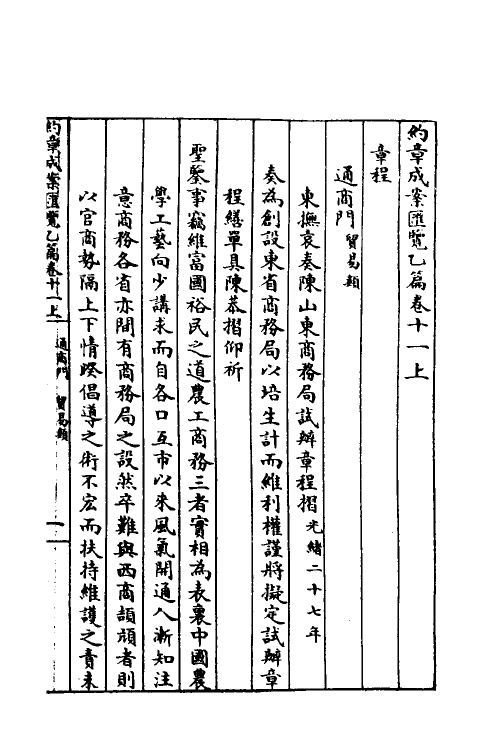 約章成案匯覽乙篇卷十一上
章程
通商門 貿易類
東撫袁奏陳山東商務局試辦章程摺 光緒二十七年
奏為創設東省商務局以培生計而維利權謹將擬定試辦章
程繕單具陳恭摺仰祈
聖鑒事竊維富國裕民之道農工商務三者實相為表裏中國農
學工藝向少講求而自各口互市以來風氣開通人漸知注
意商務各省亦間有商務局之設然卒難與西商頡頏者則
以官商勢隔上下情暌倡導之術不宏而扶持維護之責未
約章成案匯覽乙篇卷十一上 通商門 貿易類 一